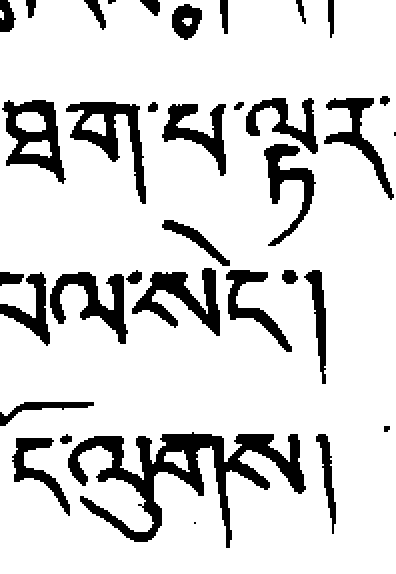 ཐག་པ་ལྟར་
པལ་སེང་།
ང་ལུགས།